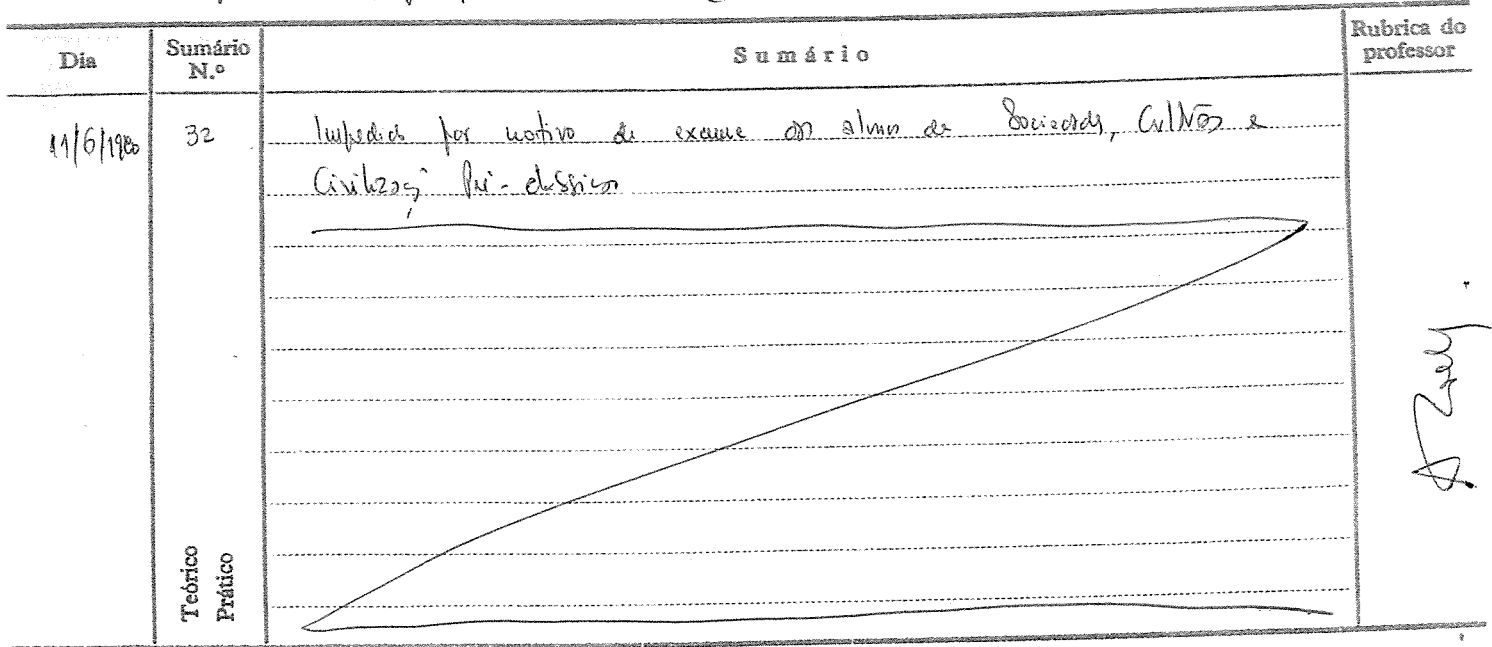 Dia
Sumário N.º
Sumário
Rubrica do professor
11/6/1980
32
Impedido por motivo de exame aos alunos de Sociedades, Culturas e
Civilizações Pré-clássicas
Teórico
Prático